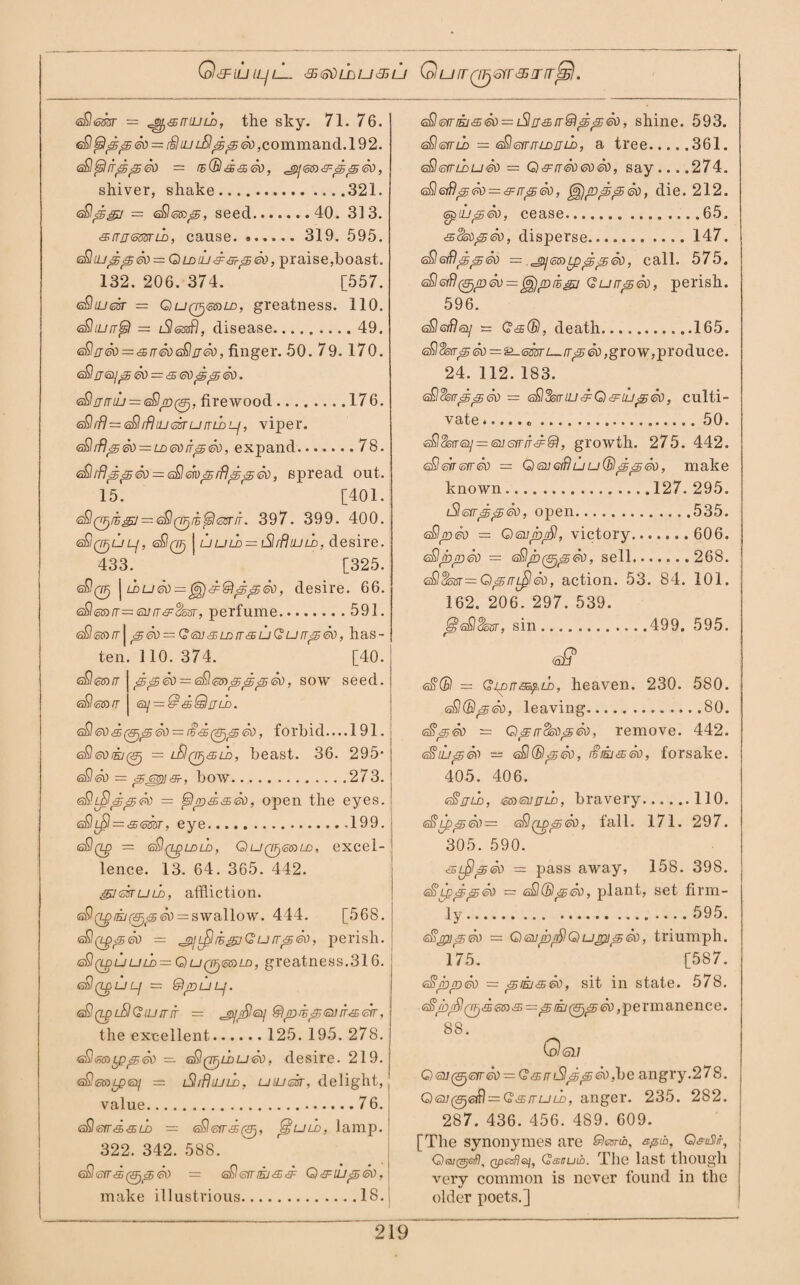 செய்யுட் கலம்பகப் பொருளகராதி.
விண் = ஆகாயம், the sky. 71. 76.
வித்தல் = நியமித்தல், command. 192.
விதிர்த்தல் = நடுக்கல், அசைத்தல்,
shiver, shake..............321.
வித்து = விதை, seed.......40. 313.
காரணம், cause. ....... 319. 595.
வியத்தல் = மெய்ச்சுதல், praise, boast.
132. 206. 374. [557.
வியன் = பெருமை, greatness. 110.
வியாதி = பிணி, disease.......... 49.
விரல் = கால்விரல், finger. 50. 79. 170.
விரவுதல் = கலத்தல்.
விராய் = விறகு, firewood ........176.
விரி = விரியன்பாம்பு, viper.
விரிதல் = மலர்தல், expand.......78.
விரித்தல் = விஸ்தரித்தல், spread out.
15. [401.
விருந்து = விருந்தினர். 397. 399. 400.
விருப்பு, விரு | ப்பம் = பிரியம், desire.
433. [325.
விரு | ம்பல் = இச்சித்தல், desire. 66.
விரை = வாசனை, perfume........591.
விரை | தல் = வேகமாகப்போதல், has-
ten. 110. 374. [40.
விரை | த்தல் = விதைத்தல், sow seed.
விரை | வு = சீக்கிரம்.
விலக்குதல் = நீக்குதல், forbid....191.
விலங்கு = மிருகம், beast. 36. 295·
வில் = தநுசு, bow.................273.
விழித்தல் = திறக்கல், open the eyes.
விழி = கண், eye..................199.
விழு = விழுமம், பெருமை, excel-
lence. 13. 64. 365. 442.
துன்பம், affliction.
விழுங்குதல் = swallow. 444. [568.
விழுதல் = அழிந்துபோதல், perish.
விழுப்பம் = பெருமை, greatness. 316.
விழுப்பு = சிறப்பு.
விழுமியோர் = அறிவு சிறந்தவர்கள்,
the excellent......125. 195. 278.
விழைதல் = விரும்பல், desire. 219.
விழைவு = பிரியம், பயன், delight,
value...........................76.
விளக்கம் = விளக்கு, தீபம், lamp.
322. 342. 588.
விளக்குதல் = விளங்கச் செய்தல்,
make illustrious..............18.
விளங்கல் = பிரகாசித்தல், shine. 593.
விளம் = விளாமரம், a tree.....361.
விளம்பல் = சொல்லல், say....274.
விளிதல் = சாதல், இறத்தல், die. 212.
ஒய்தல், cease.................65.
கலைதல், disperse............ 147.
விளித்தல் = அழைத்தல், call. 575.
விளிகுறல் = இறந்து போதல், perish.
596.
விளிவு = கேடு, death...........165.
விளைதல் = உண்டாதல், grow, produce.
24. 112. 183.
விளைத்தல் = விளையச்செய்தல், culti-
vate...... ................... 50.
விளைவு = வளர்ச்சி, growth. 275. 442.
விள்ளல் = வெளிப்படுத்தல், make
known.................127. 295.
பிளத்தல், open.............535.
விறல் = வெற்றி, victory.......606.
விற்றல் = விற்குதல், sell........268.
வினை = தொழில், action. 53. 84. 101.
162. 206. 297. 539.
தீவினை, sin..............499. 595.
வீ
வீடு = மோக்ஷம், heaven. 230. 580.
விடுதல், leaving..............80.
வீதல் = தொலைதல், remove. 442.
வீய்தல் = விடுதல், நீங்கல், forsake.
405. 406.
வீரம், வைவரம், bravery......110.
வீழ்தல் = விழுதல், fall. 171. 297.
305. 590.
கழிதல் = pass away, 158. 398.
வீழ்த்தல் = விடுதல், plant, set firm-
ly........ ................ 595.
வீறுதல் = வெற்றிபெறுதல், triumph.
175. [587.
வீற்றல் = தங்கல், sit in state. 578.
வீற்றிருக்கை = தங்குதல், permanence.
88.
வெ
வெகுளல் = கோபித்தல், be angry. 278.
வெகுளி = கோபம், anger. 235. 282.
287. 436. 456. 489. 609.
[The synonymes are சினம், கதம், செயிர்,
வெகுளி, முனிவு, கோபம். The last though
very common is never found in the
older poets.]
219